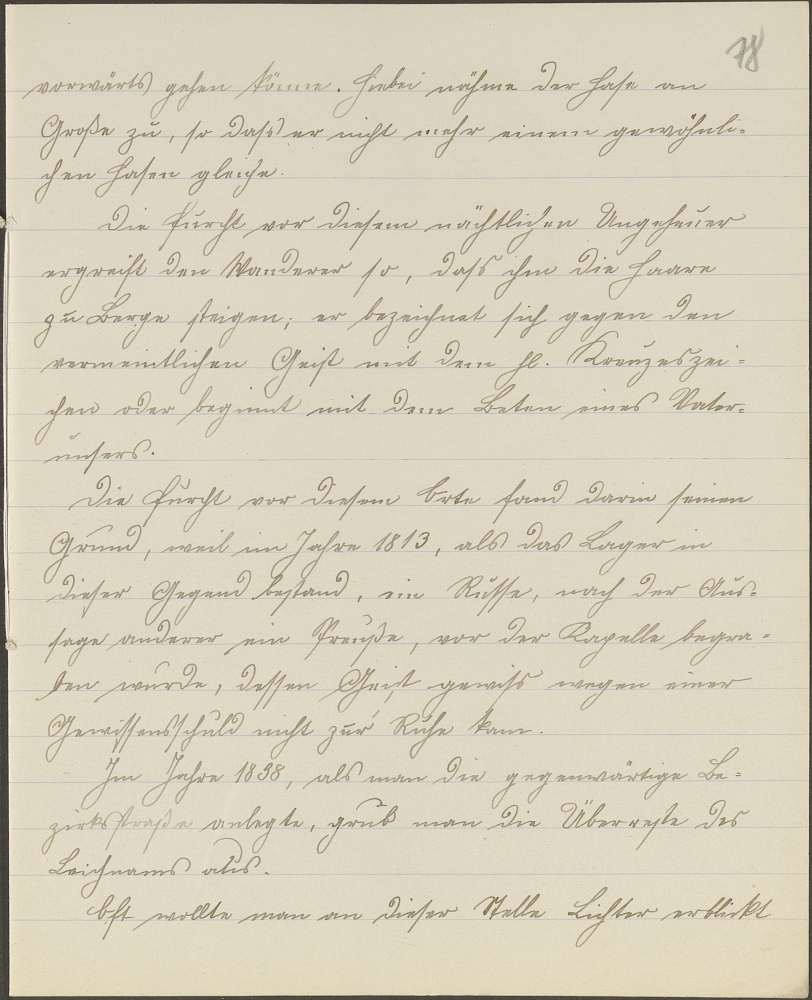 78
vorwärts gehen könne. Hiebei nähme der Hase an
Große zu, so dass er nicht mehr einem gewöhnli-
chen Hasen gleiche.
Die Furcht vor diesem nächtlichen Ungeheuer
ergreift den Wanderer so, dass ihm die Haare
zu Berge steigen; er bezeichnet sich gegen den
vermeintlichen Geist mit dem hl. Kreuzeszei-
chen oder beginnt mit dem Beten eines Vater-
unsers.
Die Furcht vor diesem Orte fand darin seinen
Grund, weil im Jahre 1813, als das Lager in
dieser Gegend bestand, ein Russe, nach der Aus-
sage anderer ein Preuße, vor der Kapelle begra-
ben wurde, dessen Geist gewiss wegen einer
Gewissensschuld nicht zur Ruhe kam.
Im Jahre 1838, als man die gegenwärtige Be-
zirksstraße anlegte, grub man die Überreste des
Leichnams aus.
Oft wollte man an dieser Stelle Lichter erblickt